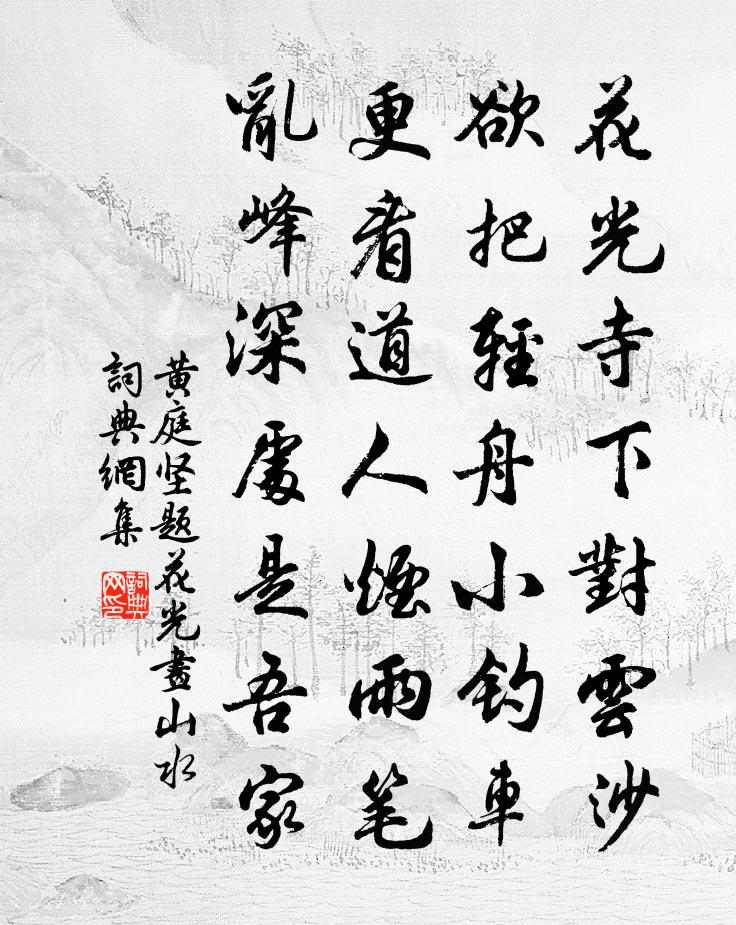 花光寺下對雲沙
欲把輕舟小钓車
更看道人煙雨笔
亂峰深處是吾家
黄庭坚题花光畫山水
詞典網集
詞典网印